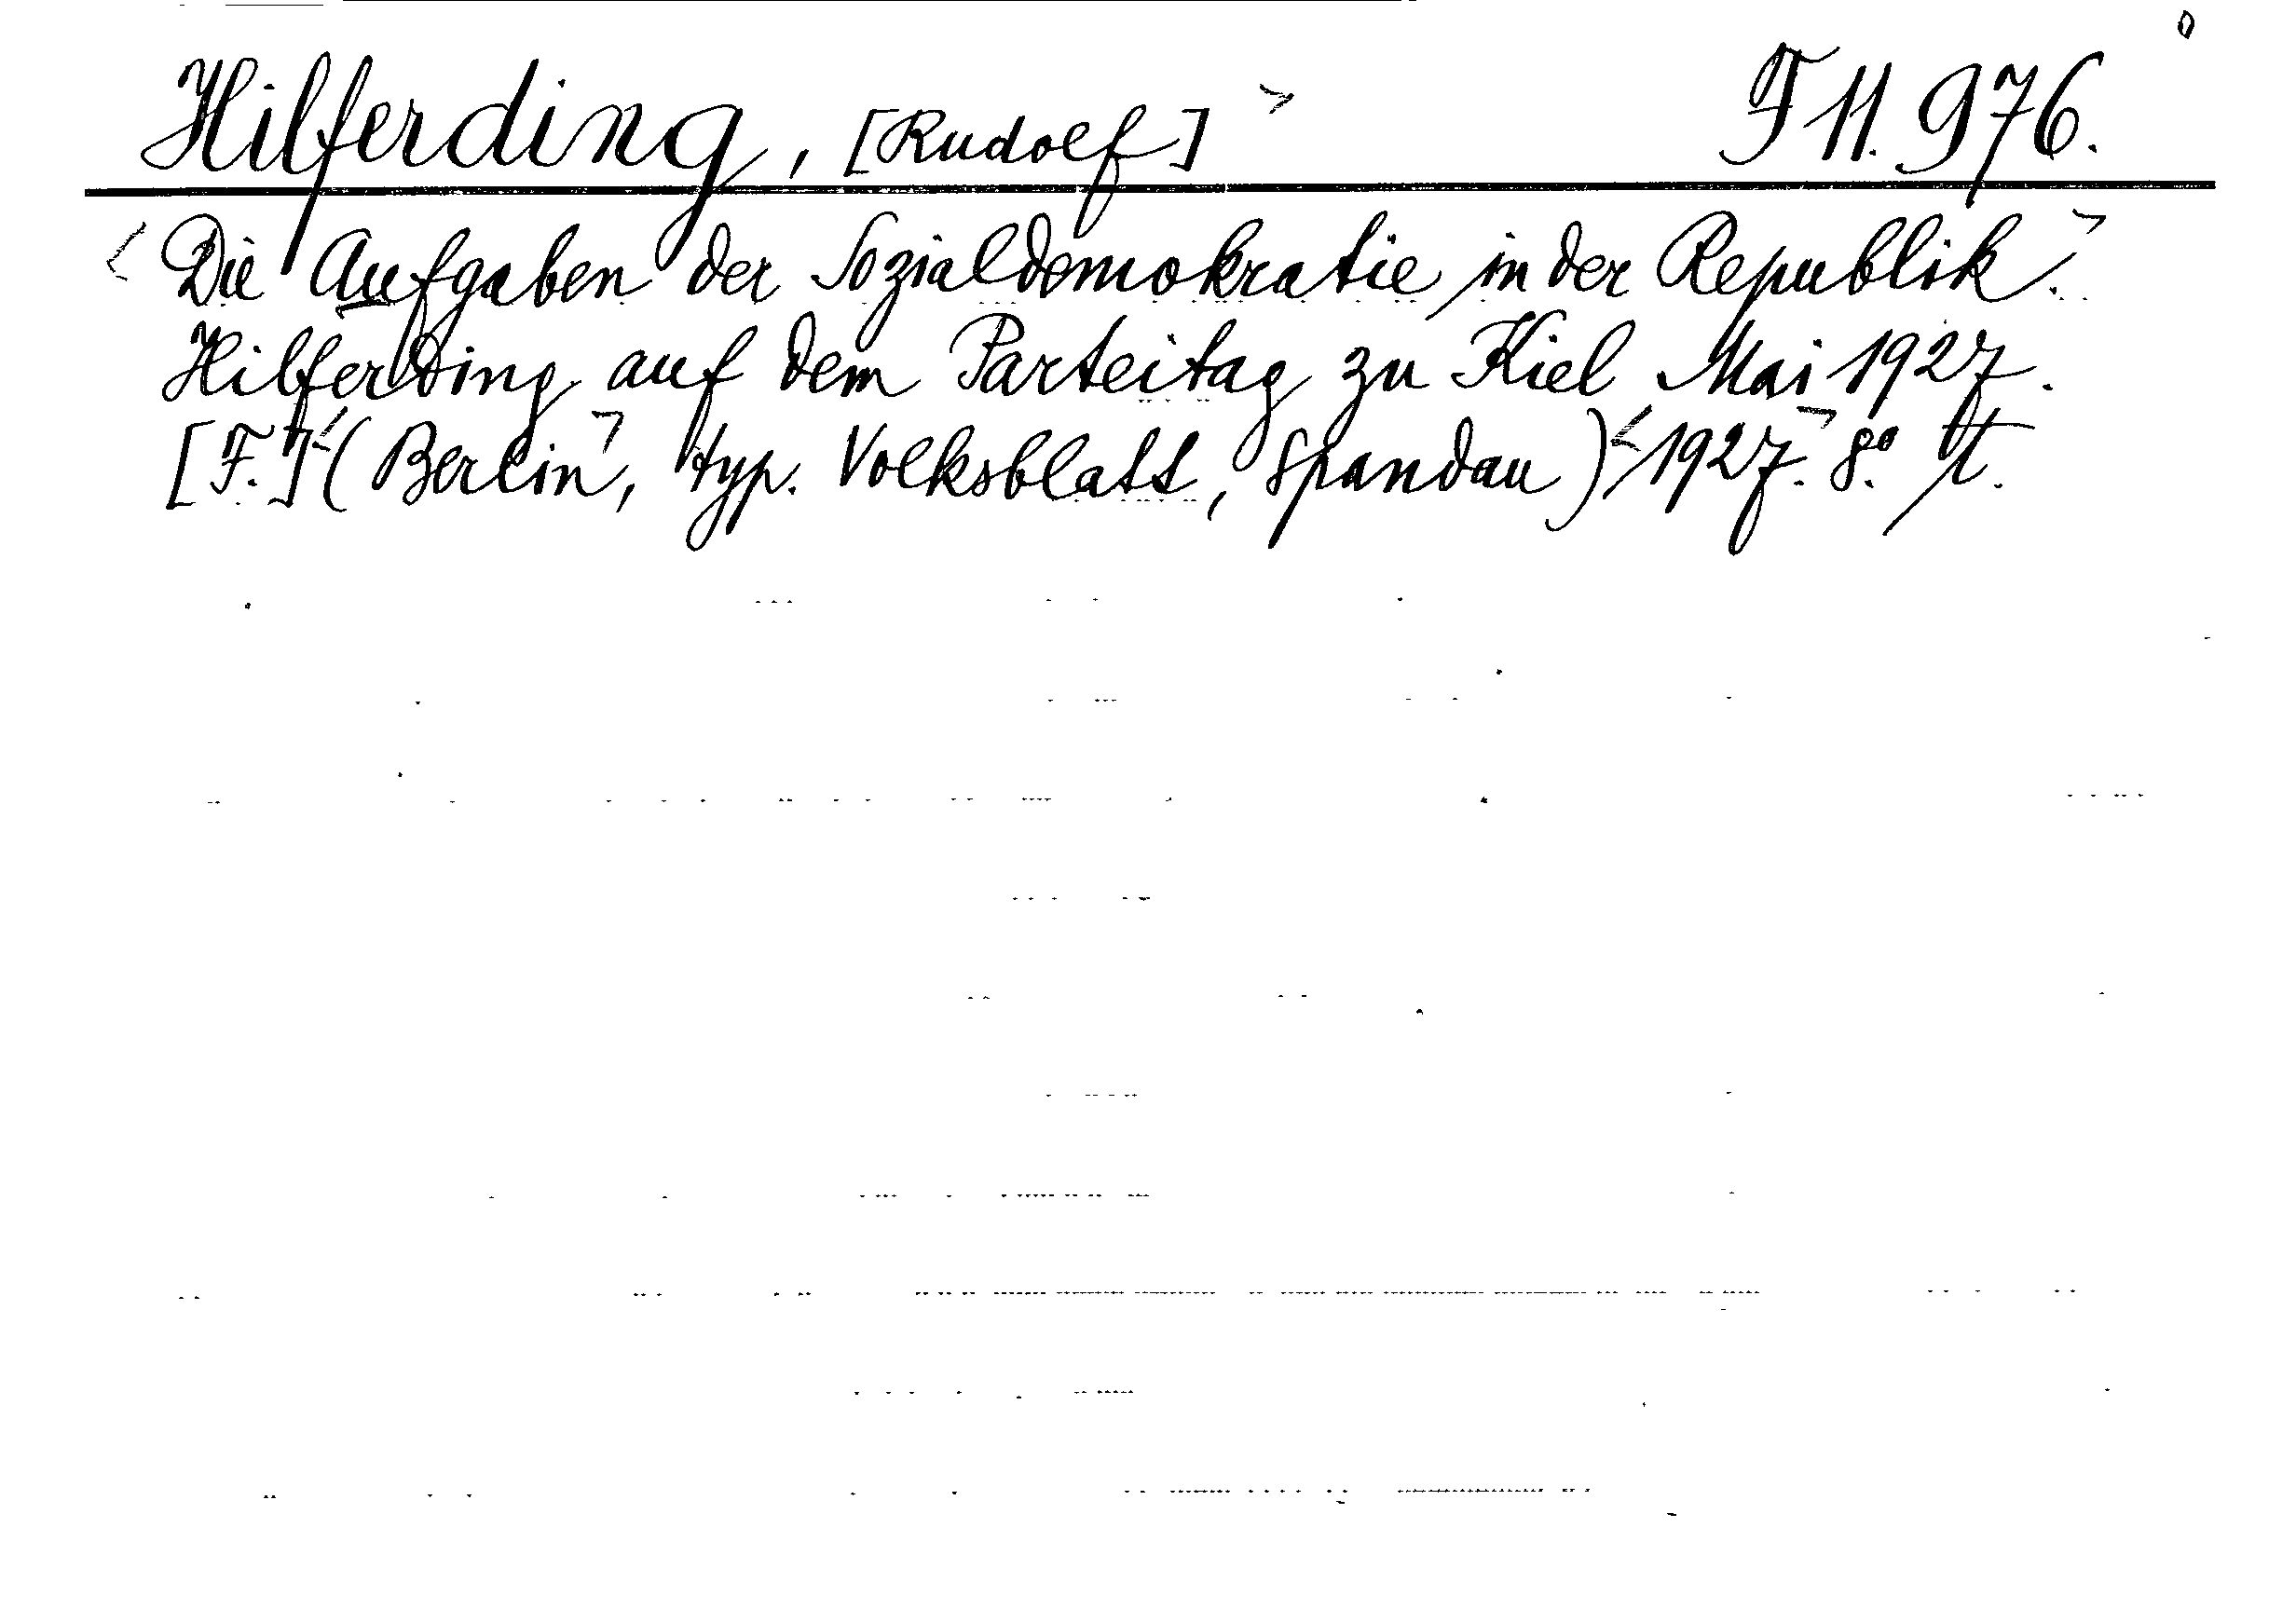 Hilferding, [Rudolf] > F 11.976.
< Die Aufgaben der Sozialdemokratie in der Republik. >
Hilferding auf dem Parteitag zu Kiel Mai 1927.
[F.] < (Berlin >, typ. Volksblatt, Spandau) < 1927. > 8º